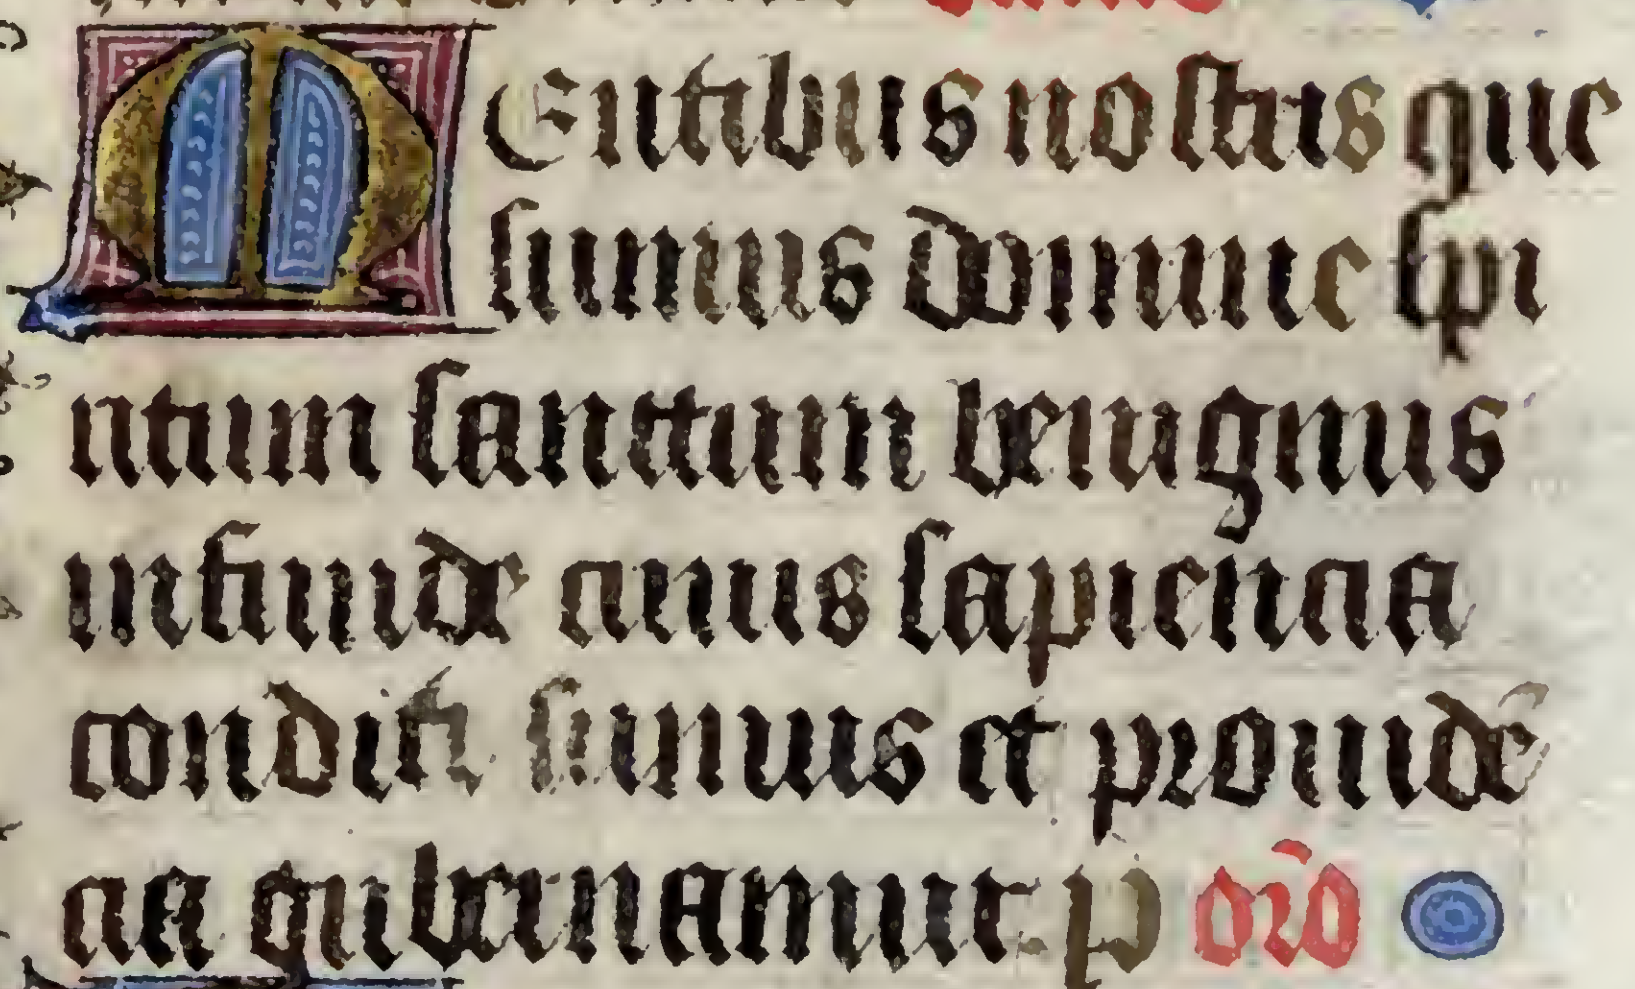 MEntibus nostris que
sumus domine spi
ritum sanctum benignus
infunde cuius sapiencia
conditi sumus et prouidē
cia gubernamur p or̄o